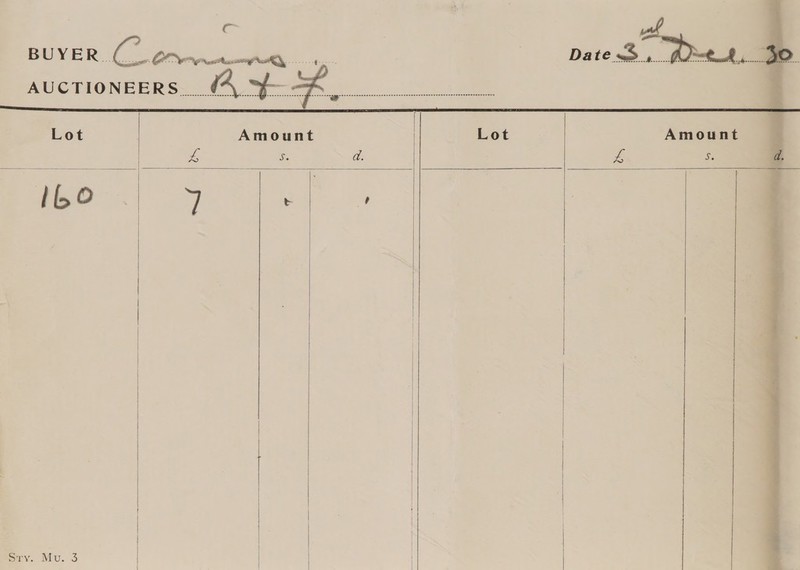 BUYER Comins.
Date 3rd. Dec. 30
AUCTIONEERS R & F.
Lot Amount Lot Amount
£ s. d. £ s. d.
160 7
STY. MU. 3